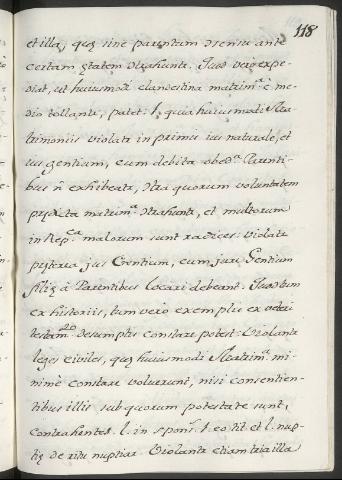 118
et illa, quę sine parentum ɔsensu ante
certam ętatem ɔtrahunt. Quod vero expe-
diat, ut huiusmodi clandestina matrim.ᵃ è me-
dio tollantr, patet: p.º quia huiusmodi Ma-
trimoniis violatr in primis ius naturale, et
ius gentium, cum debita obed.ᵃ Parenti-
bus ñ exhibeatr, ɔtra quorum voluntatem
prędicta matrim.ᵃ ɔtrahuntr, et multorum
in Rep.ᶜᵃ malorum sunt radices: violatr
prętereà jus Gentium, cum juri Gentium
filię à Parentibus locari debeant. Quod tum
ex historiis, tum verò exemplis ex veteri
testam.ᵗᵒ desumptis constare potest. Violantr
leges civiles, quę huiusmodi Matrim.ᵃ mi-
nimè constare voluerunt, nisi consentien-
tibus illis sub quorum potestate sunt,
contrahentes. l. in spons. f. eo tit. et l. nup-
tię de ritu nuptiar. Violantr etiam tria illa